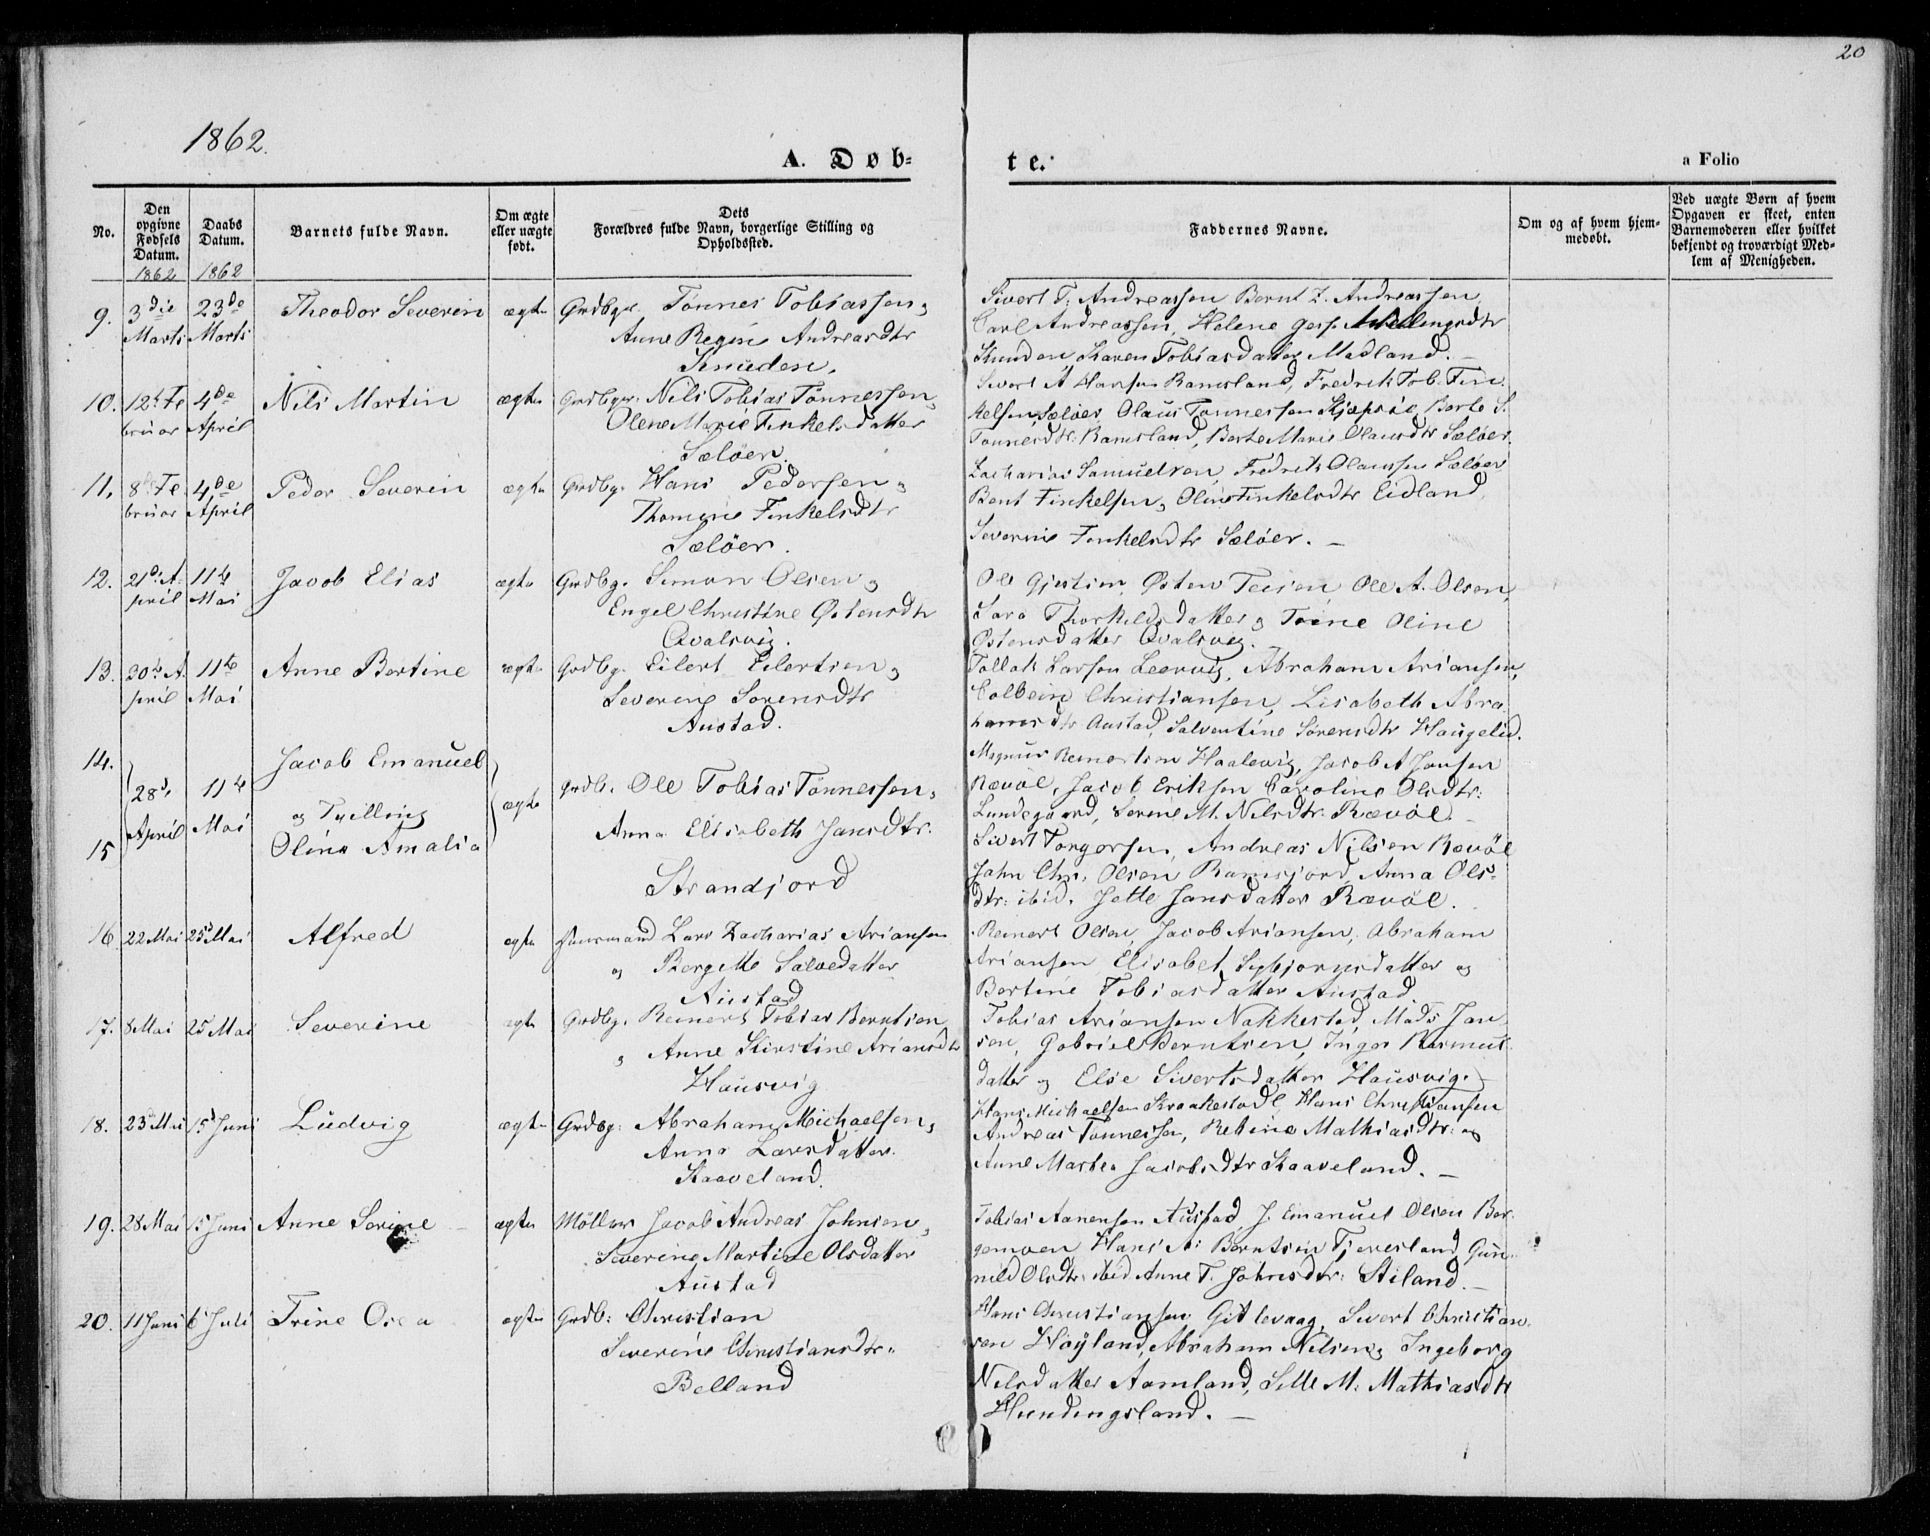 20
1862.
A. Døb=
te.
a Folio
No.
Den opgivne Fødsels Datum.
Daabs Datum.
Barnets fulde Navn.
Om ægte eller uægte født.
Dets Forældres fulde Navn, borgerlige Stilling og Opholdssted.
Faddernes Navne.
Om og af hvem hjem-
medøbt.
Ved uægte Børn af hvem
Opgaven er skeet, enten
Barnemoderen eller hvilket
bekjendt og troværdigt Med-
lem af Menigheden.
1862 1862
9. 3die Marts 23de Marts Theodor Severin ægte Grdbgr Tønnes Tobiassen,
Anne Regine Andreasdtr
Knuden.
Sivert T. Andreassen Bernt Z. Andreassen
Carl Andreassen, Helene
Knuden Karen Tobiasdatter Madland. –
10. 12te Februar 4de April Nils Martin ægte Grdbgr. Nils Tobias Tønnessen,
Olene Marie Finkelsdatter
Sæløer.
Sivert A Hansen Ramsland, Fredrik Tob. Fin
kelsen, Sæløer, Olaus Tønnessen Skjepsøe, Berte S.
Tønnesdtr. Ramsland, Berte Marie Olausdtr Sæløer.
11. 8de Februar 4de April Peder Severin ægte Grdbg. Hans Pedersen,
Thomine Finkelsdtr
Sæløer.
Zacharias Samuelsen, Fredrik Olaussen Sæløer
Bent Finkelsen, Oline Finkelsdtr Eidland,
Severine Finkelsdtr Sæløer. –
12. 21de April 11te Mai Jacob Elias ægte Grdbg. Simon Olsen,
Engel Christine Østensdtr
Qvalsvig.
Ole Gjertsen, Østen Teisen, Ole A. Olsen,
Sara Thorkildsdatter, Trine Oline
Østensdatter Qvalsvig.
13. 30te April 11te Mai Anne Bertine ægte Grdbg. Eilert Eilertsen,
Severine Sørensdtr
Austad.
Tollak Larsen Leervig, Abraham Ariansen,
Colbein Christiansen, Lisabeth Abra
hamsdtr Austad, Salventine Sørensdtr Haugelid.
14. Jacob Emanuel
28de April 11te Mai og Tvilling ægte Grdb. Ole Tobias Tønnessen,
15 Oline Amalia
Anna Elisabeth Jansdtr.
Strandfjord
Magnus Reinertsen Haalevig, Jacob A Jansen
Rævøl, Jacob Eriksen Caroline Olsdtr:
Lundegaard, Serine M. Nilsdtr. Rævøl. –
Sivert Torgersen, Andreas Nilsen Rævøl
John Chr. Olsen Ramsjord, Anna Ols-
dtr: ibid. Jette Jansdatter Rævøl.
16 22 Mai 25 Mai Alfred ægte Huusmand Lars Zacharias Ariansen
og Bergitte Salvedatter
Austad
Reinert Olsen, Jacob Ariansen, Abraham
Ariansen Elisabet Sigbjørnsdatter og
Bertine Tobiasdatter Austad.
17. 8 Mai 25 Mai Severine ægte Grdbg. Reinert Tobias Berntsen
, Anne Kirstine Ariansdtr
Hausvig
Tobias Ariansen Nakkestad, Mads Jan
sen, Gabriel Berntsen, Inger Rasmus
datter og Else Sivertsdatter Hausvig.
18. 23 Mai 15 Juni Ludvig ægte Grdbg: Abraham Michaelsen,
Anna Larsdatter
Kaaveland.
Hans Michaelsen Kraakestad, Hans Christiansen
Andreas Tønnessen, Rebine Mathiasdtr: og
Anne Marthea Jacobsdtr Kaaveland. –
19. 28 Mai 15 Juni Anne Sorine ægte Møller Jacob Andreas Johnsen,
Severine Martine Olsdatter
Austad
Tobias Aanensen Austad, J. Emanuel Olsen Ber
gemoen Hans A: Berntsen Tjersland, Gun
nild Olsdtr: ibid Anne T. Johnsdtr: Stiland. –
20. 11 Juni 6 Juli Trine Osea ægte Grdb: Christian
Severine Christiansdtr.
Belland
Hans Christiansen Gitlevaag, Sivert Christian
sen Høyland, Abraham Nilsen, Ingeborg
Nilsdatter Aamland, Sille M. Mathiasdtr
Hundingsland. –